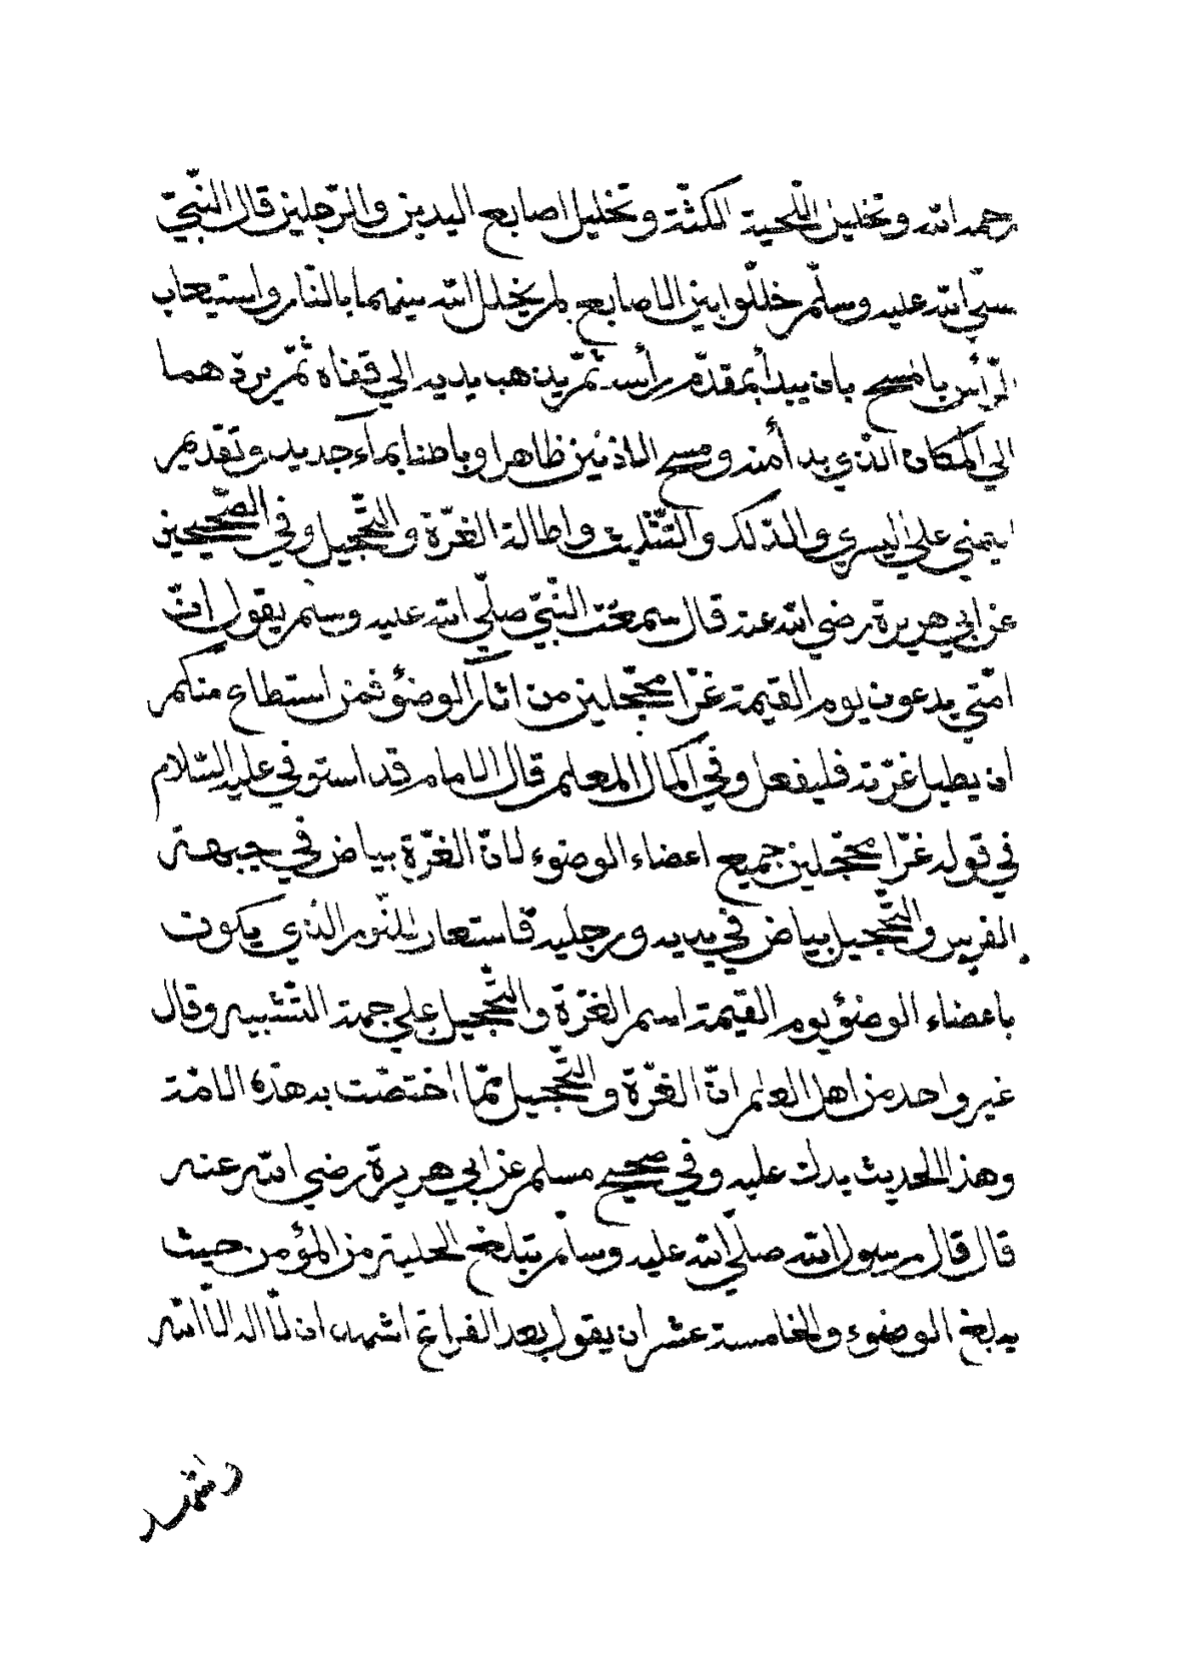 رحمه الله وتخليل اللّحية الكثّة وتخليل اصابع اليدين والرّجلين قال النّبيّ
صلّى الله عليه وسلّم خلّلوا بين الاصابع لم يخلل الله بينهما بالنّار واستيعاب
الرّأس بالمسح بان يبدأ بمقدّم رأسه ثمّ يذهب بيديه الي قفاه ثمّ يردّهما
الي المكان الذي بدأ منه ومسح الاذنين ظاهرا وباطنا بمآء جديد وتقديم
اليمني علي اليسري والدّلك والتّثليث واطالة الغرّة والتّحجيل وفي الصّحيحين
عن ابي هريرة رضي الله عنه قال سمعت النّبيّ صلّي الله عليه وسلم يقول انّ
امّتي يدعون يوم القيمة غرّا محجّلين من اثآر الوضؤ فمن استطاع منكم
ان يطيل غرّته فليفعل وفي اكمال المعلم قال الامام قد استوفي عليه السّلام
في قوله غرّا محجّلين جميع اعضاء الوضوء لانّ الغرّة بياض في جبهة
الفرس والتّحجيل بياض في يديه ورجليه فاستعار للنّور الذي يكون
باعضاء الوضؤ يوم القيمة اسم الغرّة والتّحجيل علي جهة التّشبيه وقال
غير واحد من اهل العلم انّ الغرّة والتّحجيل ممّا اختصّت به هذه الامّة
وهذا الحديث يدل عليه وفي صحيح مسلم عن ابي هريرة رضي الله عنه
قال قال رسول الله صلّي الله عليه وسلّم تبلغ الحلية من المؤمن حيث
يبلغ الوضوء والخامسة عشر ان يقول بعد الفراغ اشهد ان لّا اله الّا الله